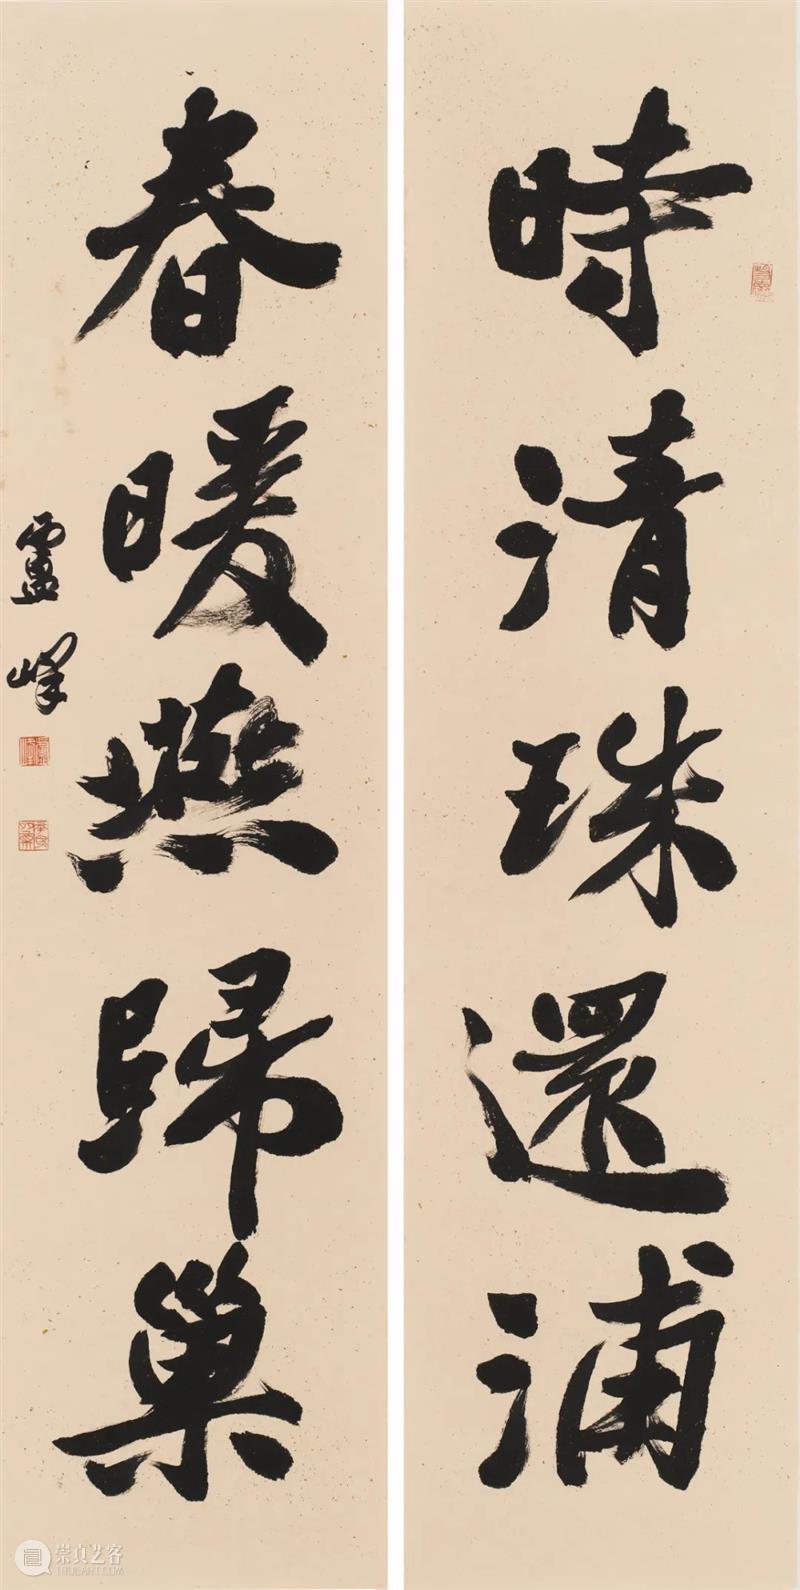 時清珠還浦
春暖燕歸巢
峰
崇真艺客
WWW.TRUEART.COM